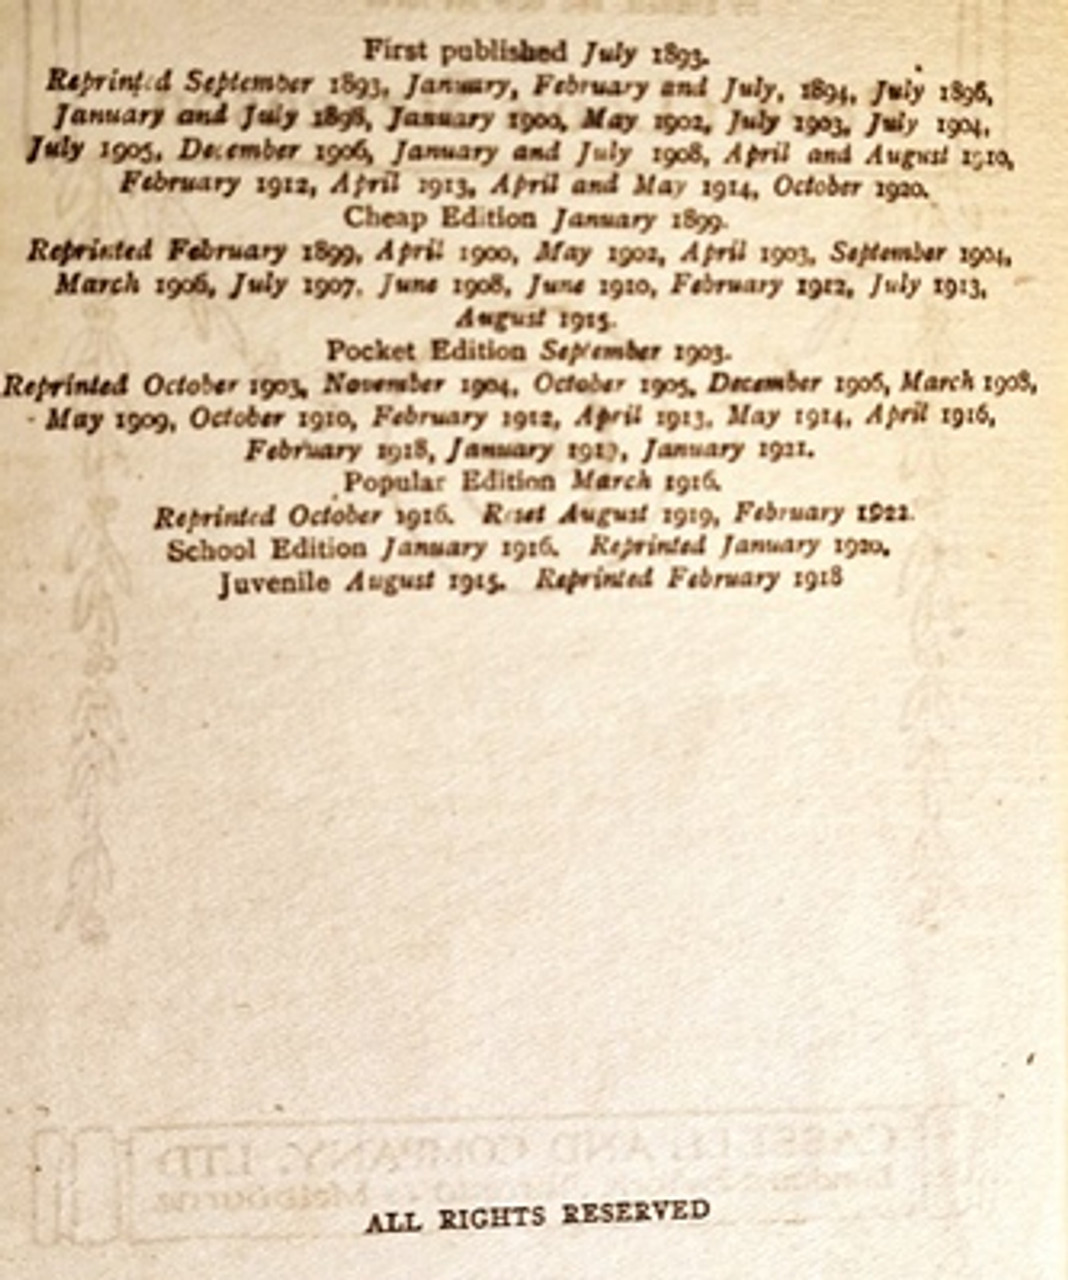 First published July 1893.
Reprinted September 1893, January, February and July, 1894, July 1896,
January and July 1898, January 1900, May 1902, July 1903, July 1904,
July 1905, December 1906, January and July 1908, April and August 1910,
February 1912, April 1913, April and May 1914, October 1920.
Cheap Edition January 1899.
Reprinted February 1899, April 1900, May 1902, April 1903, September 1904,
March 1906, July 1907, June 1908, June 1910, February 1912, July 1913,
August 1915.
Pocket Edition September 1903.
Reprinted October 1903, November 1904, October 1905, December 1906, March 1908,
May 1909, October 1910, February 1912, April 1913, May 1914, April 1916,
February 1918, January, January 1921.
Popular Edition March 1916.
Reprinted October 1916. Reset August 1919, February 1922.
School Edition January 1916. Reprinted January 1920.
Juvenile August 1915. Reprinted February 1918
CASSELL AND COMPANY, LTD
ALL RIGHTS RESERVED